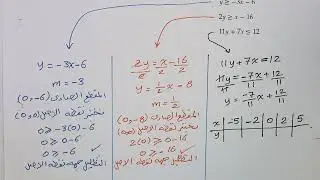 y ≥ -3x-6
2y ≥ x - 16
11y + 7x ≤ 12
y = -3x-6
m = -3
المقطع الصادي (0,-6)
نختبر نقطة الاصل (0,0)
0 ≥ -3(0)-6
0 ≥ -6 ✓
التظليل جهة نقطة الاصل
2y/2 = x-16/2
y = 1/2 x - 8
m = 1/2
المقطع الصادي (0,-8)
نختبر نقطة الاصل (0,0)
2(0) ≥ 0-16
0 ≥ -16 ✓
التظليل جهة نقطة الاصل
11y + 7x = 12
11y/11 = -7x+12/11
y = -7x+12/11
x -5 -2 0 2 5
y